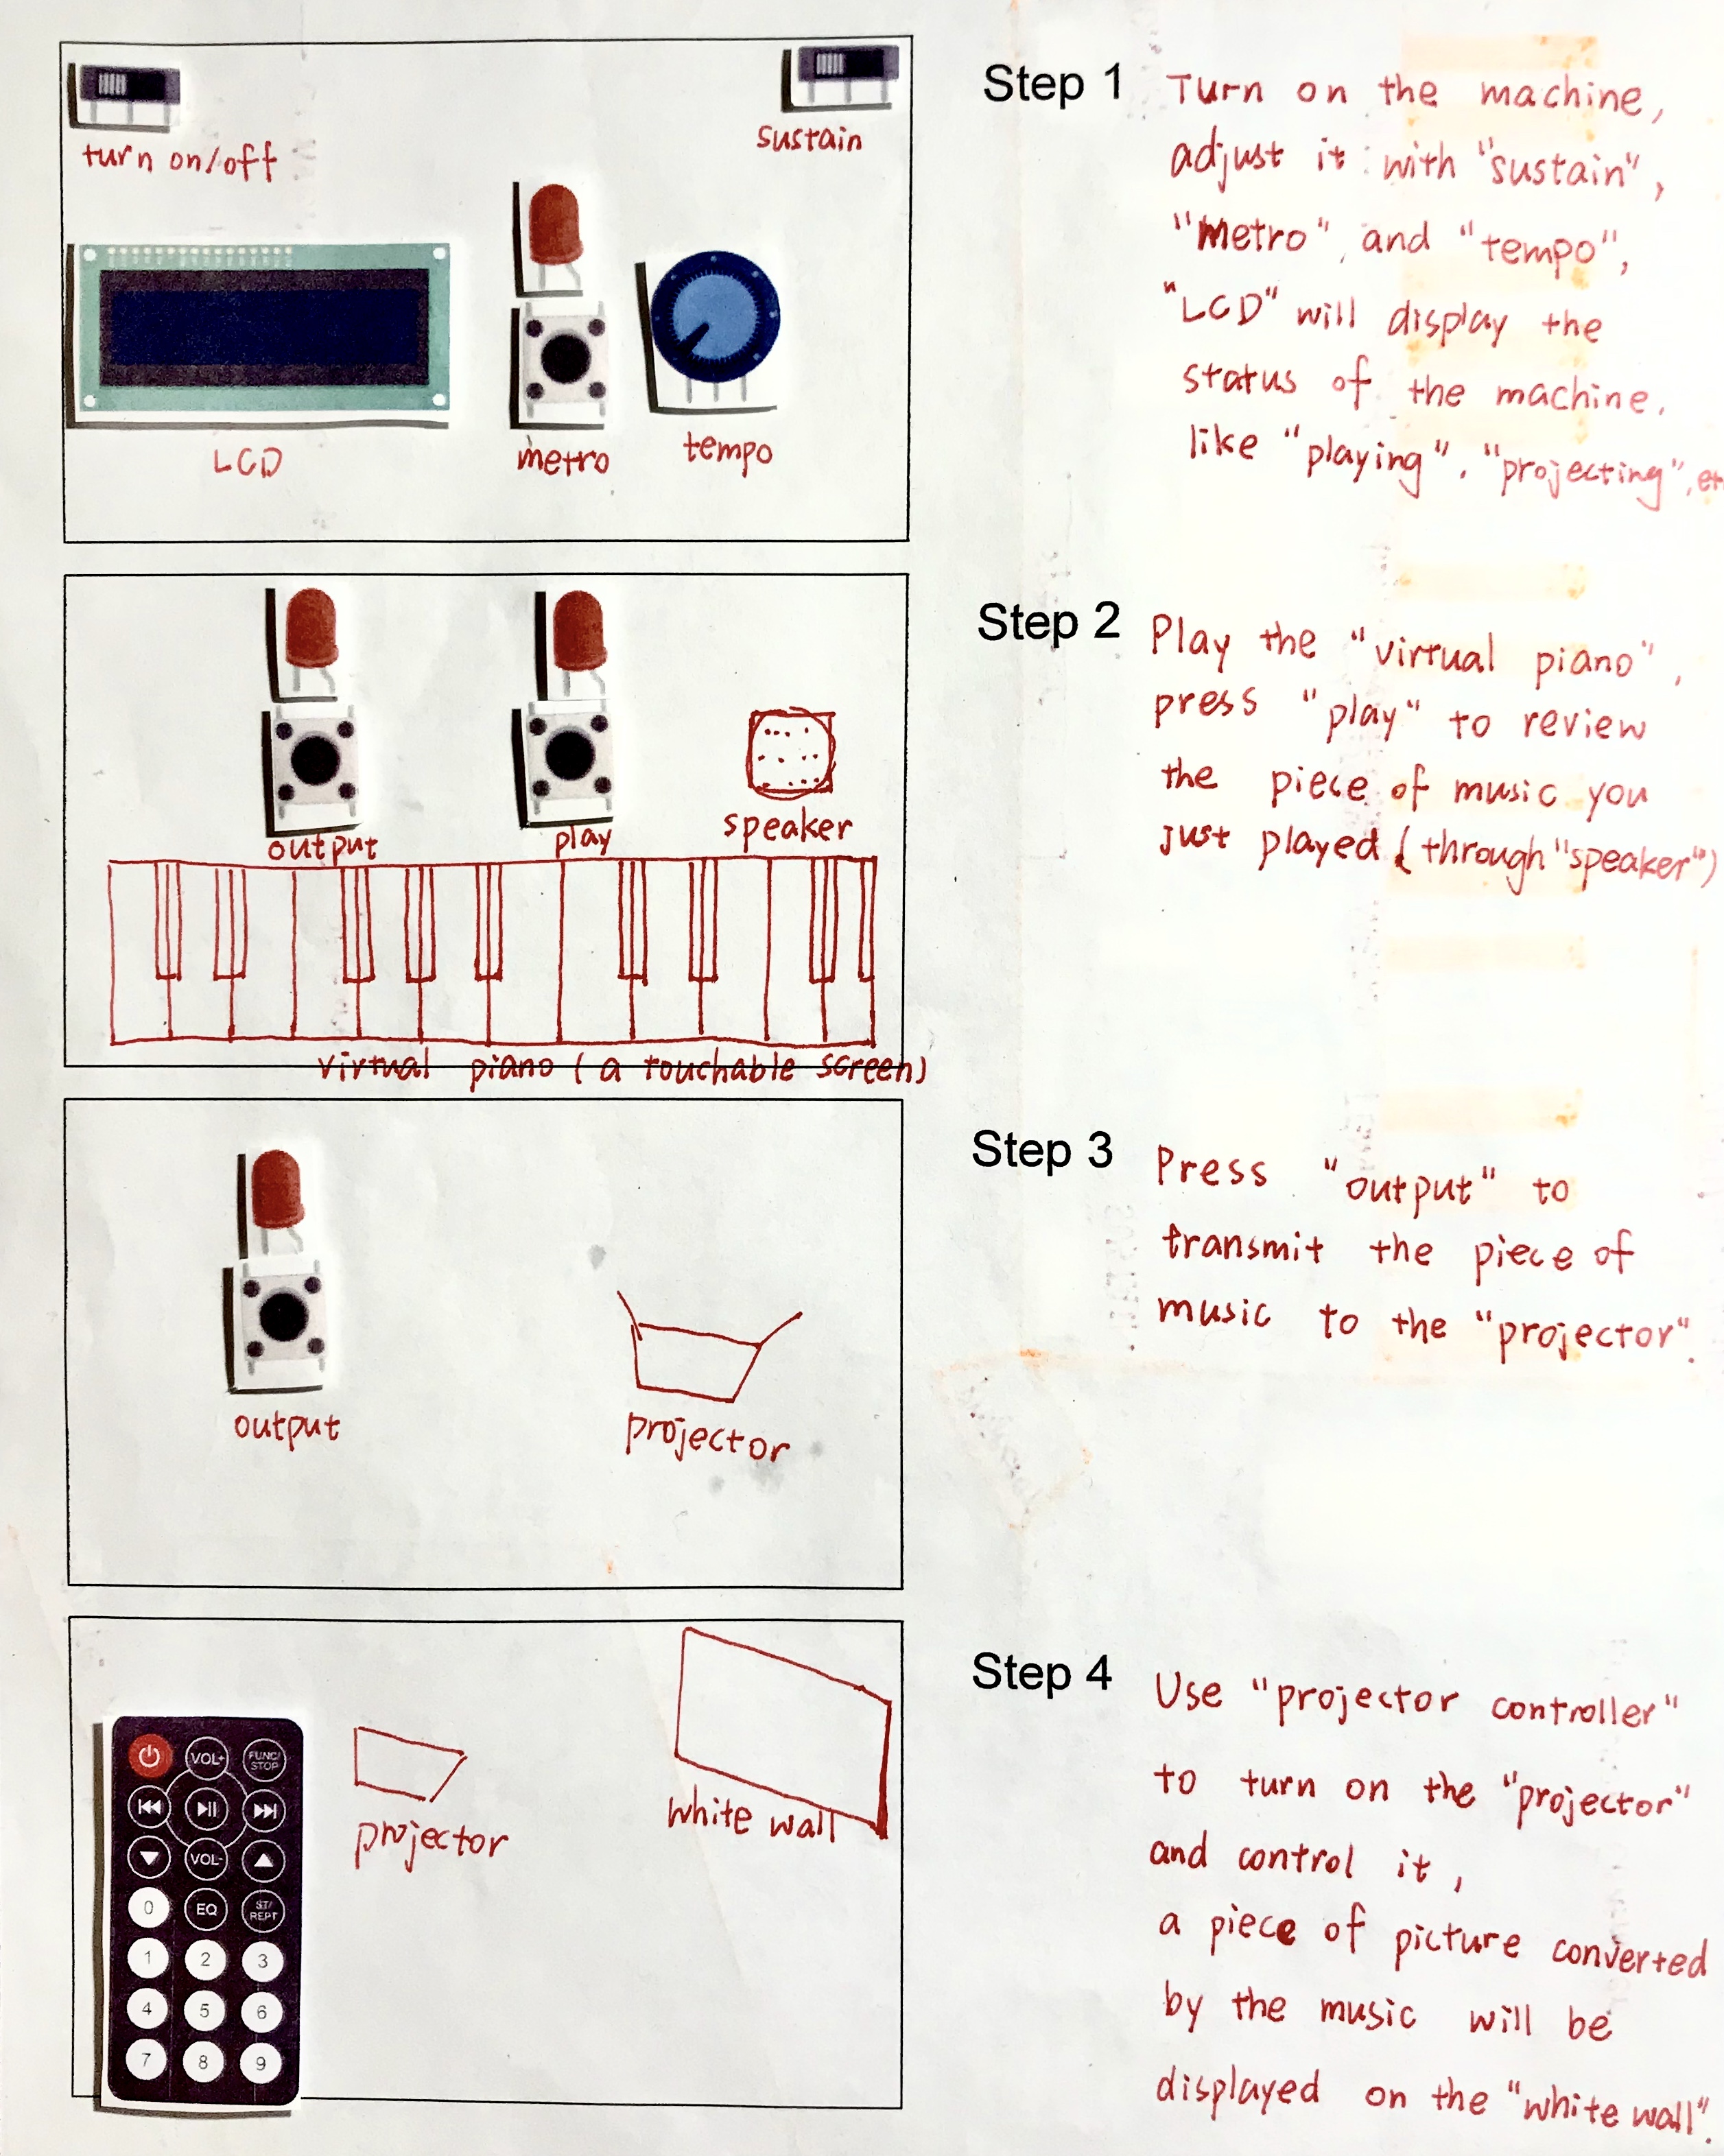 turn on/off
sustain
LCD
metro
tempo
Step 1
Turn on the machine,
adjust it with "sustain",
"Metro", and "tempo",
"LCD" will display the
status of the machine,
like "playing", "projecting",
output
play
speaker
virtual piano (a touchable screen)
Step 2
Play the "virtual piano",
press "play" to review
the piece of music you
just played (through "speaker")
output
projector
Step 3
Press "output" to
transmit the piece of
music to the "projector".
VOL+
FUNC/
STOP
VOL-
0
EQ
ST/
REPT
1 2 3
4 5 6
7 8 9
projector
white wall
Step 4
Use "projector controller"
to turn on the "projector"
and control it,
a piece of picture converted
by the music will be
displayed on the "white wall".